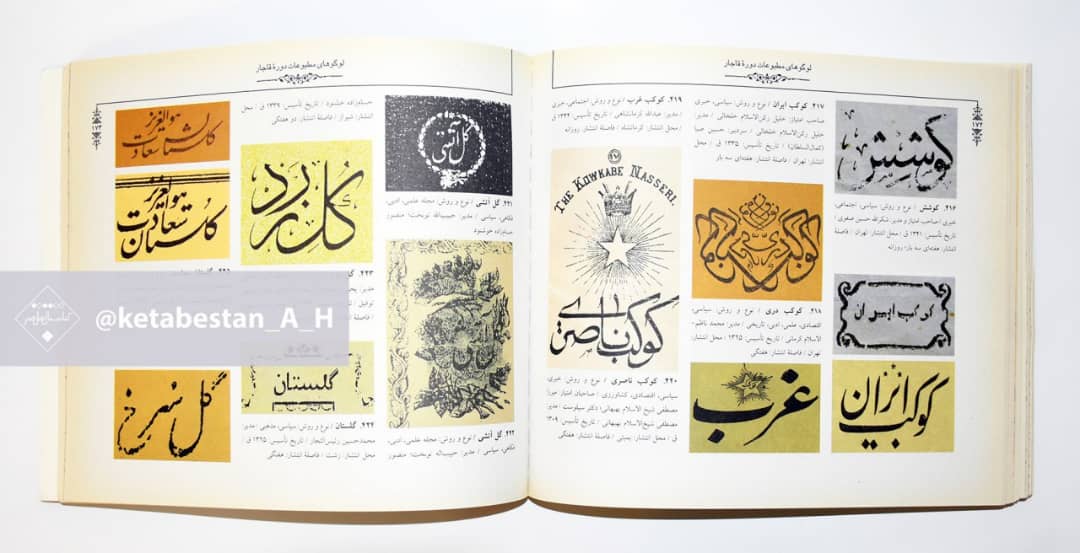 لوگوهای مطبوعات دورهٔ قاجار
۱۷۲
کوشش
۲۱۶. کوشش / نوع و روش: سیاسی، اجتماعی،
خبری / صاحب امتیاز و مدیر: شکرالله حسین صفوی /
تاریخ تأسیس: ۱۳۴۱ ق / محل انتشار: تهران / فاصلهٔ
انتشار: هفته‌ای سه بار؛ روزانه
کوکب ایران
کوکب ایران
۲۱۷. کوکب ایران / نوع و روش: سیاسی، خبری
صاحب امتیاز: خلیل رکن‌الاسلام خلخالی / مدیر:
خلیل رکن‌الاسلام خلخالی / سردبیر: حسین صبا
(کمال‌السلطان) / تاریخ تأسیس: ۱۳۳۵ ق / محل
انتشار: تهران / فاصلهٔ انتشار: هفته‌ای سه بار
کوکب دری
۲۱۸. کوکب دری / نوع و روش: سیاسی،
اقتصادی، علمی، ادبی، تاریخی / مدیر: محمد ناظم‌
الاسلام کرمانی / تاریخ تأسیس: ۱۳۲۵ / محل انتشار:
تهران / فاصلهٔ انتشار: هفتگی
غرب
۲۱۹. کوکب غرب / نوع و روش: اجتماعی، خبری
/ مدیر: عبدالله کرمانشاهی / تاریخ تأسیس: ۱۳۴۲ ق
/ محل انتشار: کرمانشاه / فاصلهٔ انتشار: روزانه
THE KOWKABE NASSERI.
کوکب ناصری
۲۲۰. کوکب ناصری / نوع و روش: خبری،
سیاسی، اقتصادی، کشاورزی / صاحبان امتیاز: میرزا
مصطفی شیخ الاسلام بهبهانی / دکتر سیلوست / مدیر:
مصطفی شیخ‌الاسلام بهبهانی / تاریخ تأسیس: ۱۳۰۹
ق / محل انتشار: بمبئی / فاصلهٔ انتشار: هفتگی
لوگوهای مطبوعات دورهٔ قاجار
۱۷۳
گل آتشی
۲۲۱. گل آتشی / نوع و روش: مجله علمی، ادبی،
فکاهی، سیاسی / مدیر: حبیب‌الله نوبخت؛ منصور
حسام‌زاده خشنود
۲۲۲. گل آتشی / نوع و روش: مجله علمی، ادبی،
فکاهی، سیاسی / مدیر: حبیب‌الله نوبخت؛ منصور
حسام‌زاده خشنود / تاریخ تأسیس: ۱۳۳۷ ق / محل
انتشار: شیراز / فاصلهٔ انتشار: دو هفتگی
گل زرد
۲۲۳. گل
مدیر: یحیی
توفیق /
محل انتشار
گلستان
۲۲۴. گلستان / نوع و روش: سیاسی، مذهبی / مدیر:
محمدحسین رئیس‌التجار / تاریخ تأسیس: ۱۳۲۵ ق /
محل انتشار: رشت / فاصلهٔ انتشار: هفتگی
هوالعزیز
گلستان سعادت
هوالعزیز
گلستان سعادت
گل سرخ
@ketabestan_A_H